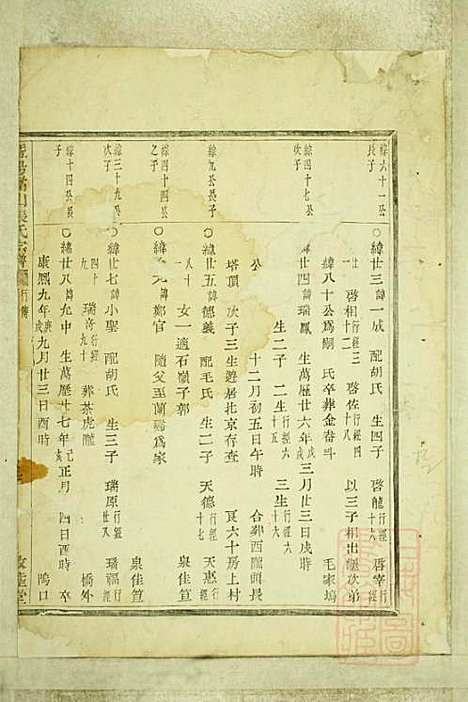 緯六十一公
長子
○緯廿三諱一成 配胡氏 生四子 啓龍行經十六 啓宰行經
廿 啓相行經十二 啓佐行經四十八 以三子相出繼次弟
緯八十公爲嗣 氏卒葬金畚斗 毛家塢
緯四十七公
次子
○緯廿四諱瑞鳳 生萬歷廿六年戊戌三月廿三日戌時
生二子 二生行經六十五 三生行經六十六
公 十二月初五日午時 合葬西隴頭長
塔頂 次子三生遊居北京存查 六十房上村
緯九公長子
○緯廿五諱德義 配毛氏 生二子 天德行經十七 天惠行經
八十 女一適石嶺子郭 泉佳笪
緯四十四公
之子
鄭官 隨父至蘭谿爲家
緯三十九公
次子
○緯廿七諱小聖 配胡氏 生三子 瑞原行經廿又 瑞福行經
四十 瑞奇行經九十 葬茶虎隴 橋外
緯十四公長
子
○緯廿八諱九中 生萬歷十七年己亥正月 四日酉時 卒
康熙九年庚戌九月廿三日酉時 塢口